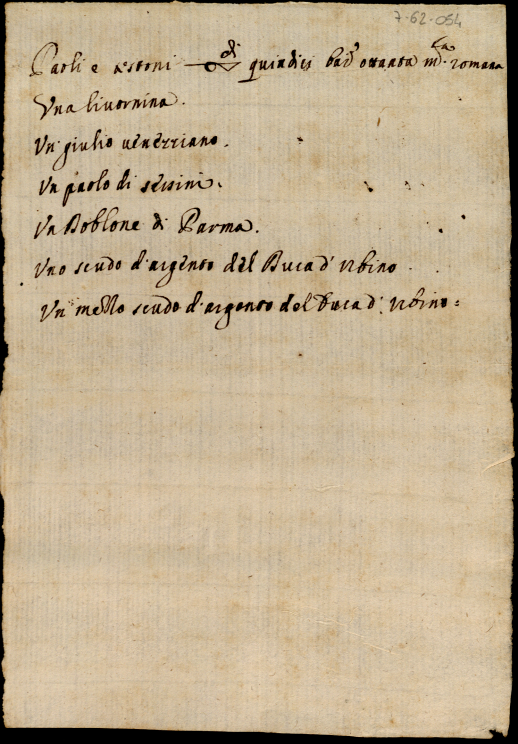 7-62-054
Paoli e testoni di quindici bai ottanta m.ta romana
Una livornina.
Un giulio venezziano.
Un paolo di sessini.
Un Doblone di Parma.
Uno scudo d'argento del Duca d' Urbino
Un mezzo scudo d'argento del Duca d' Urbino.